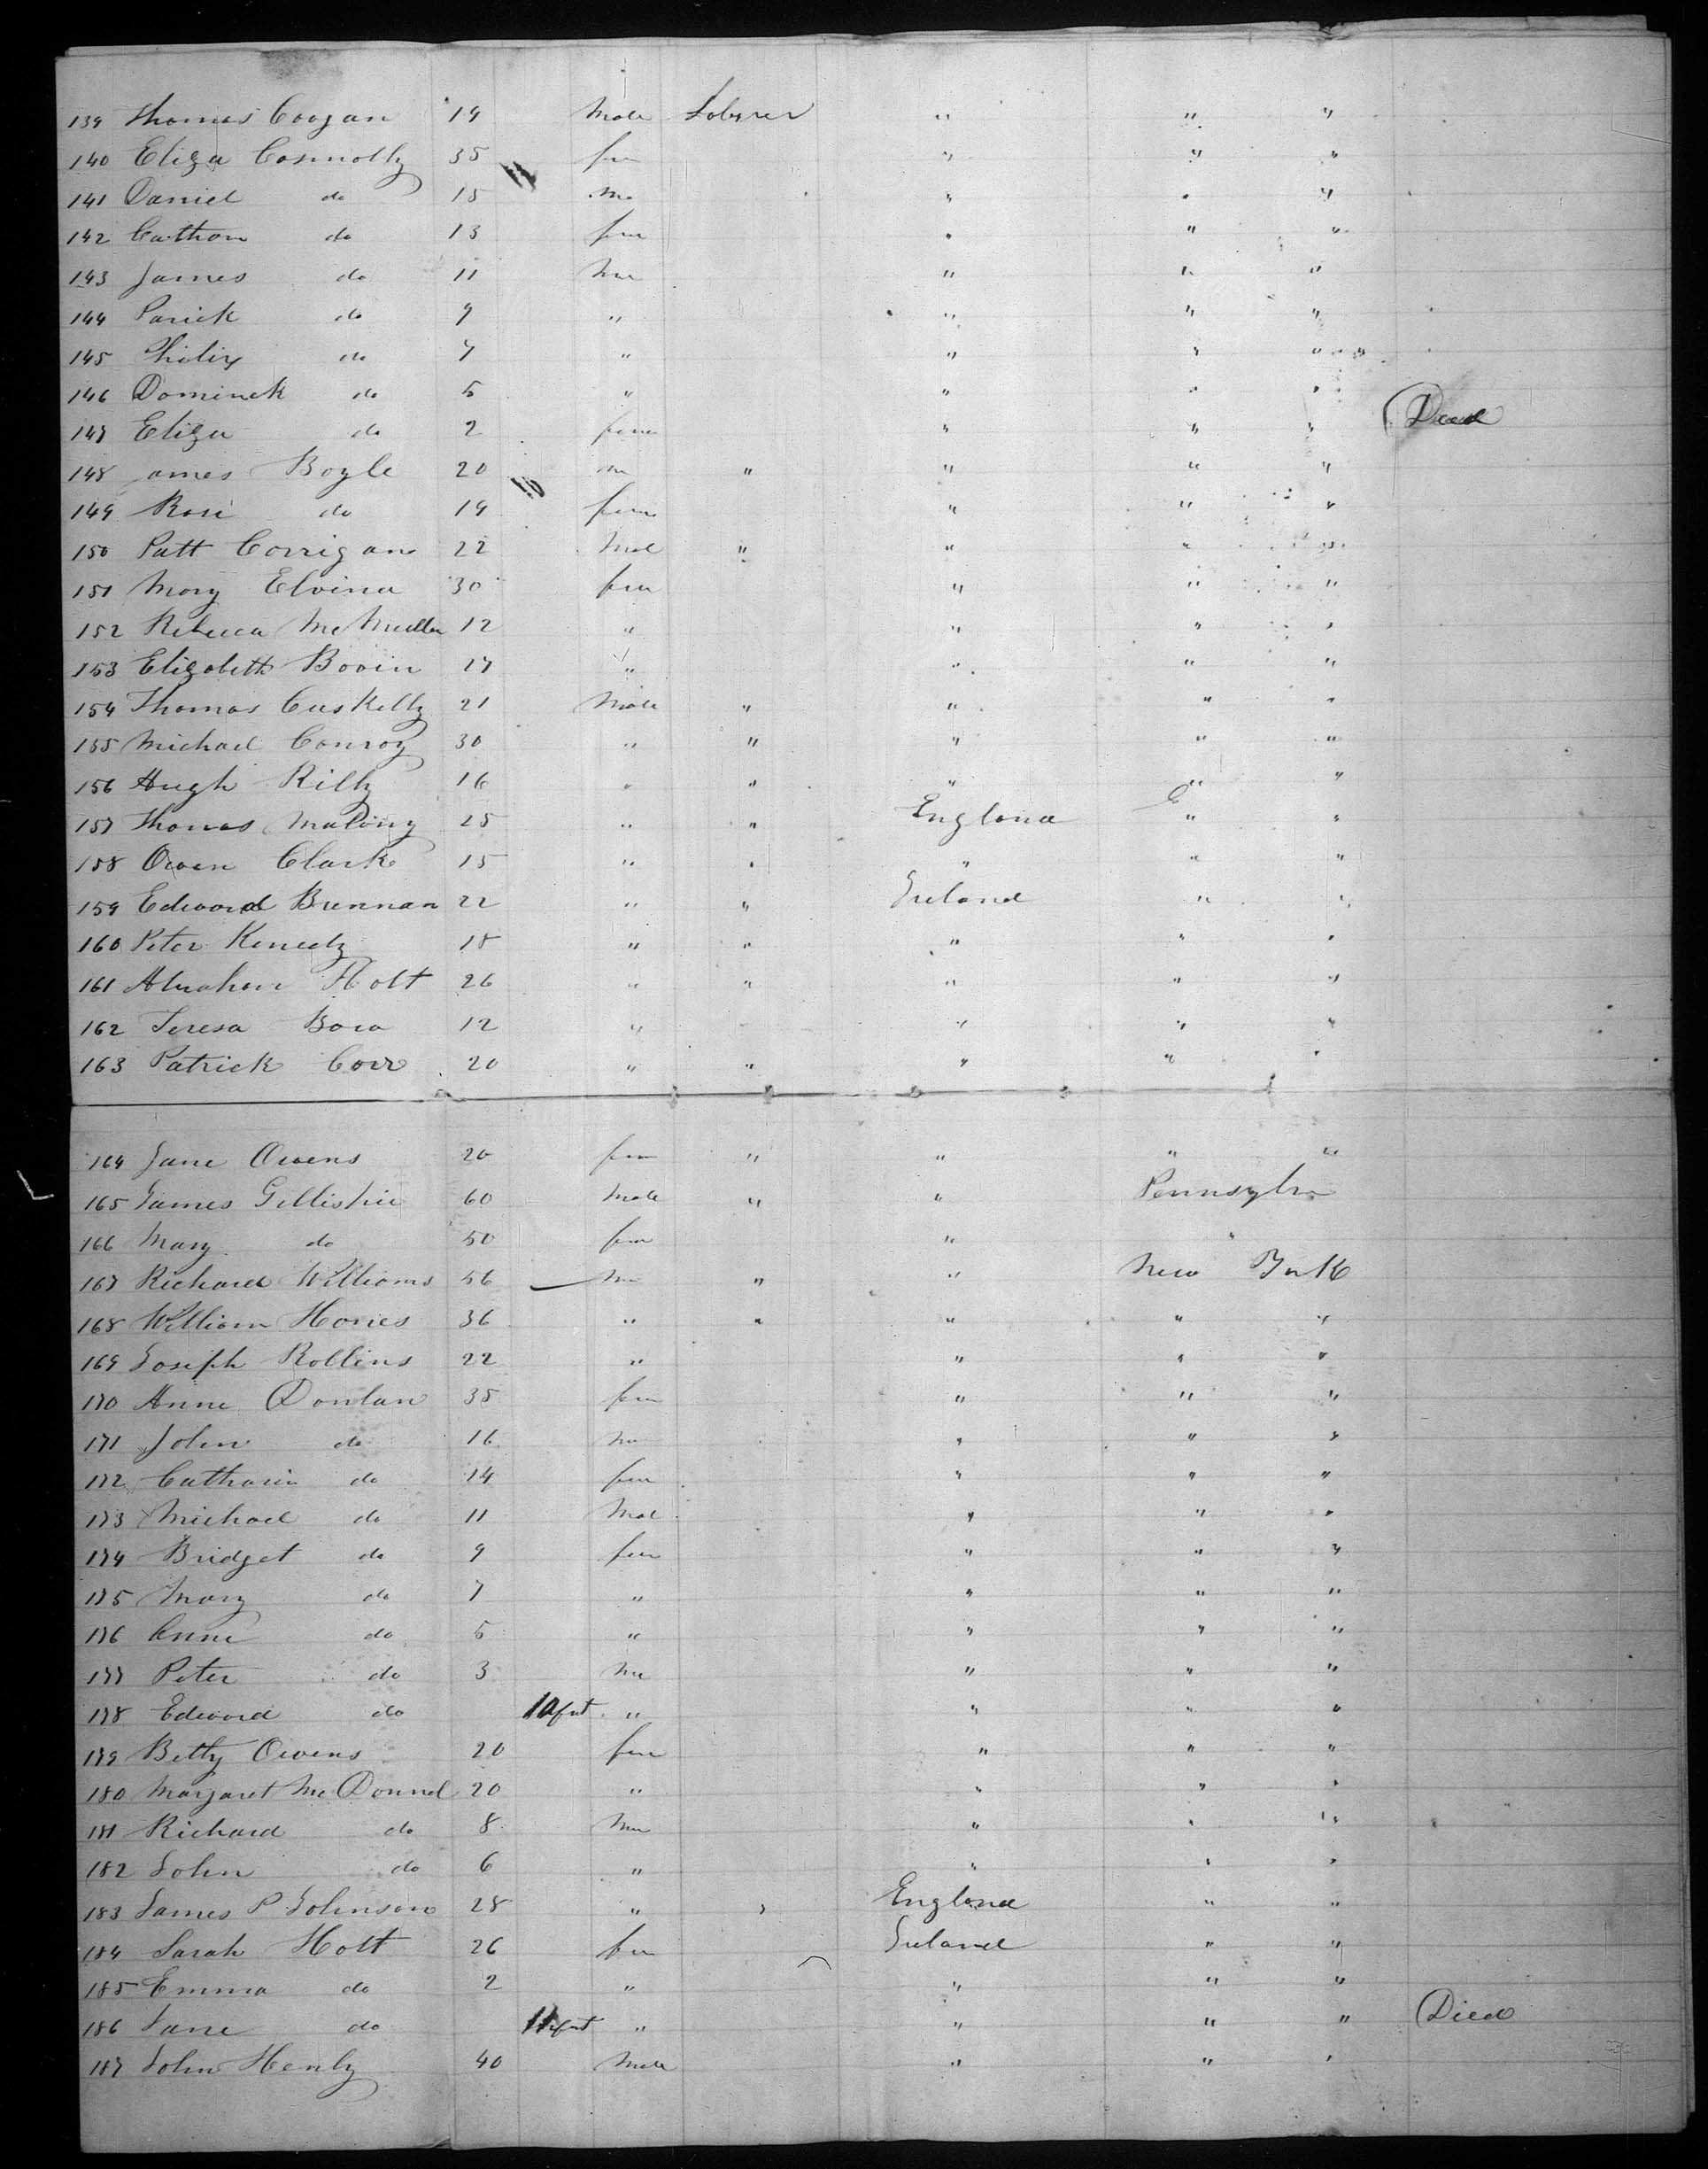 139 Thomas Coogan 19 Male Laborer " " "
140 Eliza Connolly 35 fem " " "
141 Daniel do 15 Ma " " "
142 Cathon do 13 fem " " "
143 James do 11 Ma " " "
144 Parick do 9 " " " "
145 Philip do 7 " " " "
146 Dominick do 5 " " " "
147 Eliza do 2 feme " " " Died
148 James Boyle 20 m " " " "
149 Rose do 19 fem " " "
150 Patt Corrigan 22 Mal " " " "
151 Mary Elvina 30 fem " " "
152 Rebecca McMullen 12 " " " "
153 Elizabeth Bovin 17 " " " "
154 Thomas Cuskelly 21 Male " " " "
155 Michael Conroy 30 " " " " "
156 Hugh Rilly 16 " " " " "
157 Thomas Malony 25 " " England " "
158 Owen Clark 15 " " " " "
159 Edward Brennan 22 " " Ireland " "
160 Peter Kenedy 18 " " " " "
161 Abraham Holt 26 " " " " "
162 Teresa 12 " " " "
163 Patrick Corr 20 " " " " "
164 Jane Owens 20 fem " " " "
165 James Gillispie 60 Male " " Pennsylva
166 Mary do 50 fem " "
167 Richard Williams 56 Ma " " New York
168 William Hories 36 " " " " "
169 Joseph Rollins 22 " " " "
170 Anne Donlan 35 fem " " "
171 John do 16 Ma " " "
172 Catharin do 14 fem " " "
173 Michael do 11 Mal " " "
174 Bridget do 9 fem " " "
175 Mary do 7 " " " "
176 Anne do 5 " " " "
177 Peter do 3 Ma " " "
178 Edward do Infnt " " " "
179 Betty Owens 20 fem " " "
180 Margaret McDonnel 20 " " " "
181 Richard do 8 Ma " " "
182 John do 6 " " " "
183 James P Johnson 28 " " England " "
184 Sarah Holt 26 fem Ireland " "
185 Emma do 2 " " " "
186 Jane do Infnt " " " " Died
187 John Henly 40 Male " " "